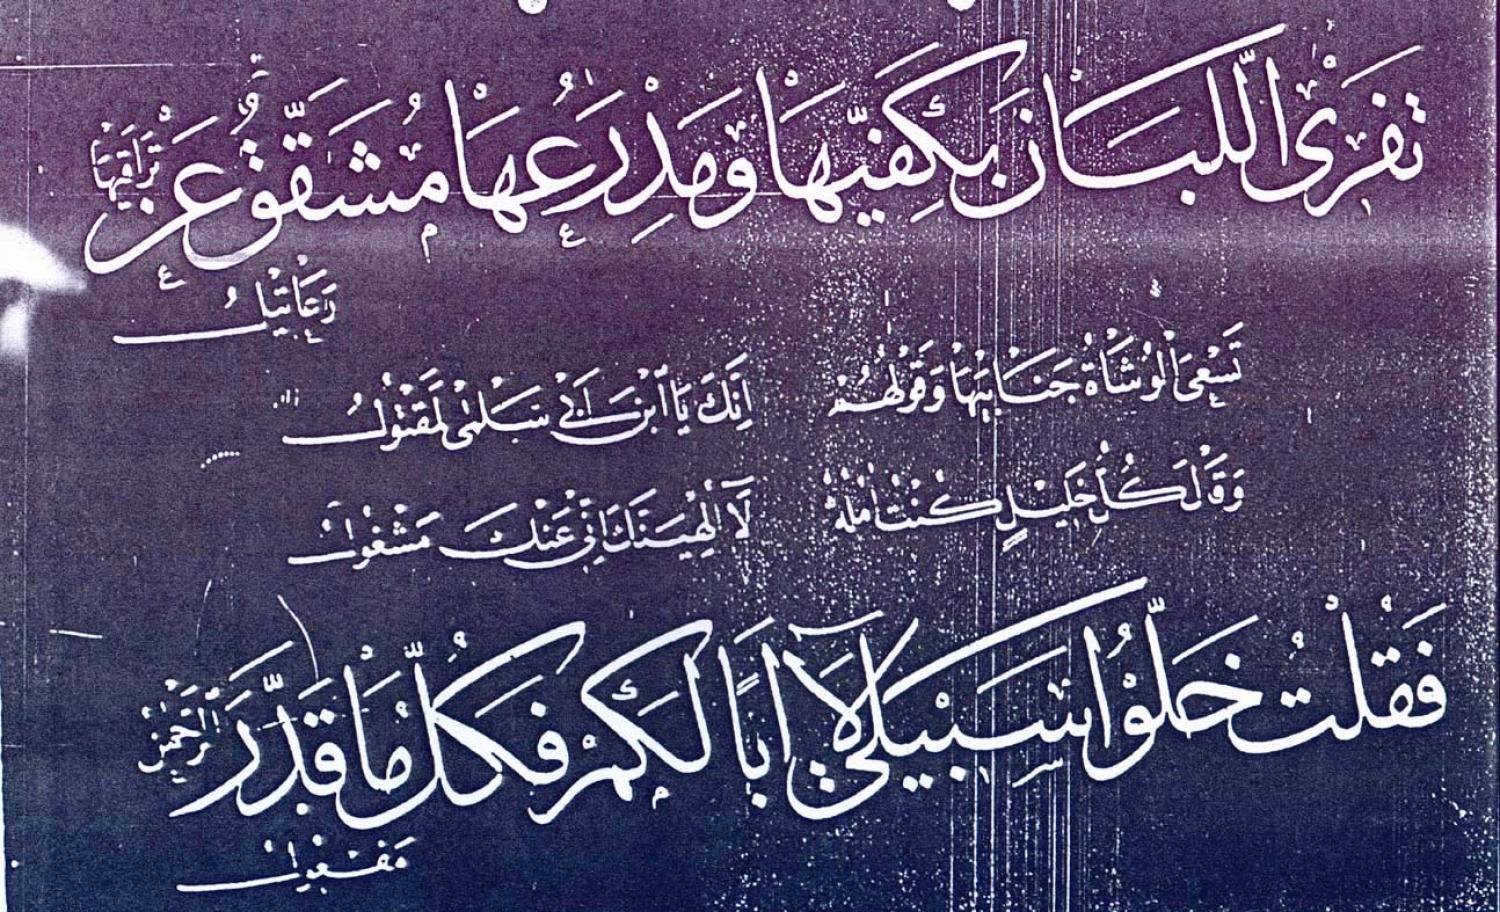 تَفْرِى اللَّبَانَ بِكَفَّيْهَا وَمِدْرَعُهَا مُشَقَّقٌ عَنْ تَرَاقِيْهَا
رَعَابِيْلُ
تَسْعَى الْوُشَاةُ جَنَابَيْهَا وَقَوْلُهُمْ اِنَّكَ يَا ابْنَ اَبِى سُلْمٰى لَمَقْتُوْلُ
وَقَالَ كُلُّ خَلِيْلٍ كُنْتُ اٰمُلُهُ لَا اُلْهِيَنَّكَ اِنِّى عَنْكَ مَشْغُوْلُ
فَقُلْتُ خَلُّوْا سَبِيْلِى لَا اَبًا لَكُمْ فَكُلُّ مَا قَدَّرَ الرَّحْمٰنُ
مَفْعُوْلُ